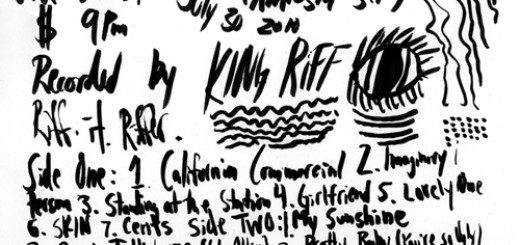 July
$ 9PM 30 2010
Recorded by KING RIFF
Riff. It. Riffer.
Side One: 1. California Commercial 2. Imaginary
Person 3. Standing at the Station 4. Girlfriend 5. Lovely One
6. SKIN 7. Cents Side TWO: 1. My Sunshine
Pretty Baby